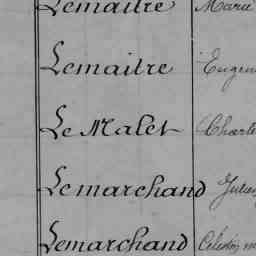 Lemaitre Marie
Lemaitre Eugen
Le Malet Charle
Lemarchand Julien
Lemarchand